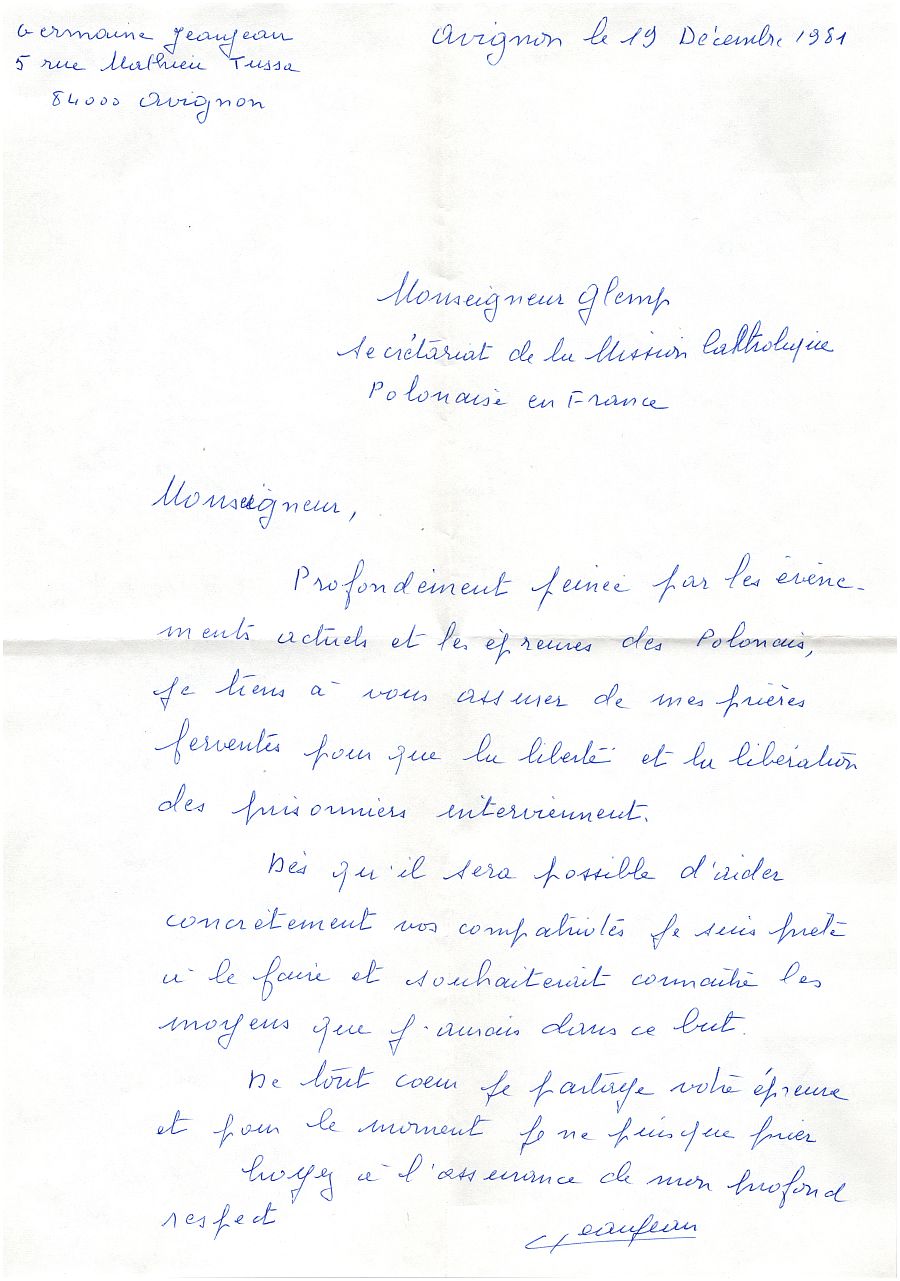 Germaine Jeanjean
Avignon le 19 Décembre 1981
5 rue Mathieu Tussa
84000 Avignon
Monseigneur Glemp
Secrétariat de la Mission Catholique
Polonaise en France
Monseigneur,
Profondément peinée par les évène-
ments actuels et les épreuves des Polonais,
je tiens à vous assurer de mes prières
ferventes pour que la liberté et la libération
des prisonniers interviennent.
Dès qu'il sera possible d'aider
concrètement vos compatriotes je suis prête
à le faire et souhaiterait connaître les
moyens que j'aurais dans ce but.
De tout coeur je partage votre épreuve
et pour le moment je ne puis que prier
Croyez à l'assurance de mon profond
respect
Jeanjean